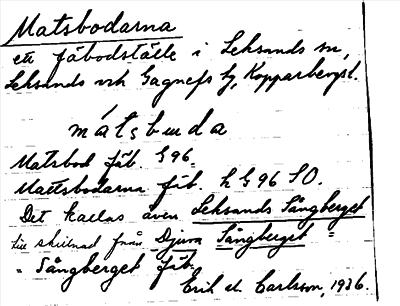 Matsbodarna
ett fäbodställe i Leksands sn,
Leksands och Gagnefs tg, Kopparbergsl.
mátsbuda
Matsbod fäb. G 96.
Maetsbodarna fäb. h G 96 SO.
Det kallas även Leksands Sångberget
till skillnad från Djura Sångberget =
= Sångberget fäb.
Erik A. Carlsson, 1936.